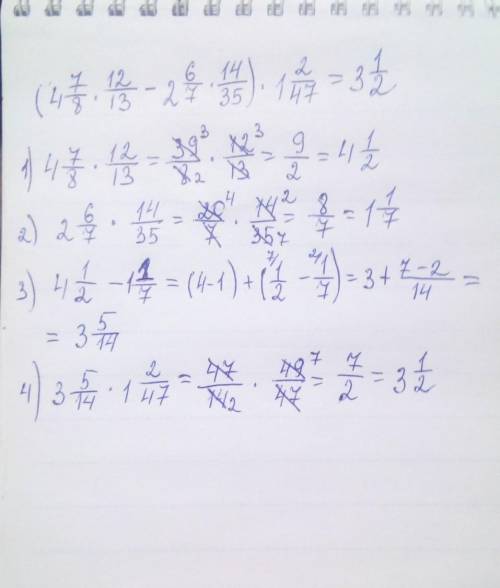 (4 7/8 · 12/13 − 2 6/7 · 14/35) · 1 2/47 = 3 1/2
1) 4 7/8 · 12/13 = 39 3/8 2 · 12 3/13 = 9/2 = 4 1/2
2) 2 6/7 · 14/35 = 20 4/7 · 14 2/35 7 = 8/7 = 1 1/7
3) 4 1/2 − 1 1/7 = (4-1) + (7/ 1/2 − 2/ 1/7) = 3 + 7-2/14 =
= 3 5/14
4) 3 5/14 · 1 2/47 = 47/14 2 · 49 7/47 = 7/2 = 3 1/2